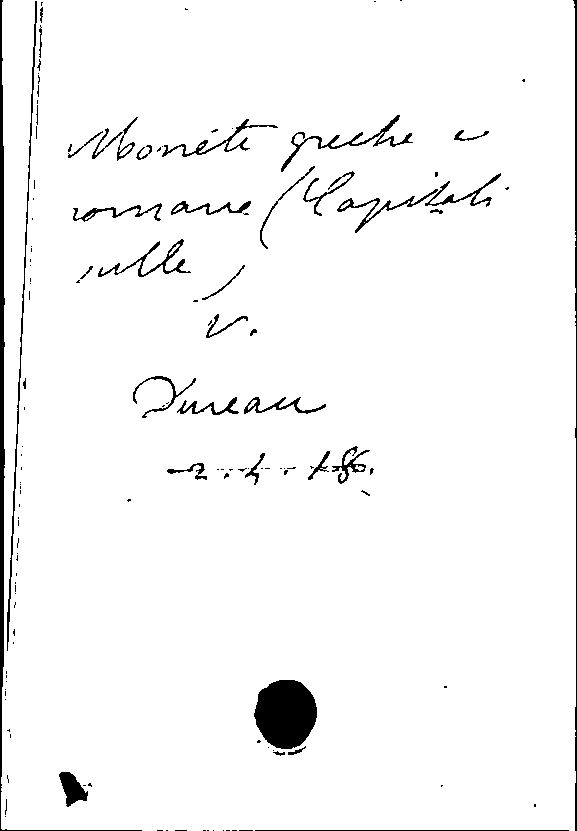 Monete greche e
romane (Capitoli
sulle)
V.
Dureau
2.4.186.